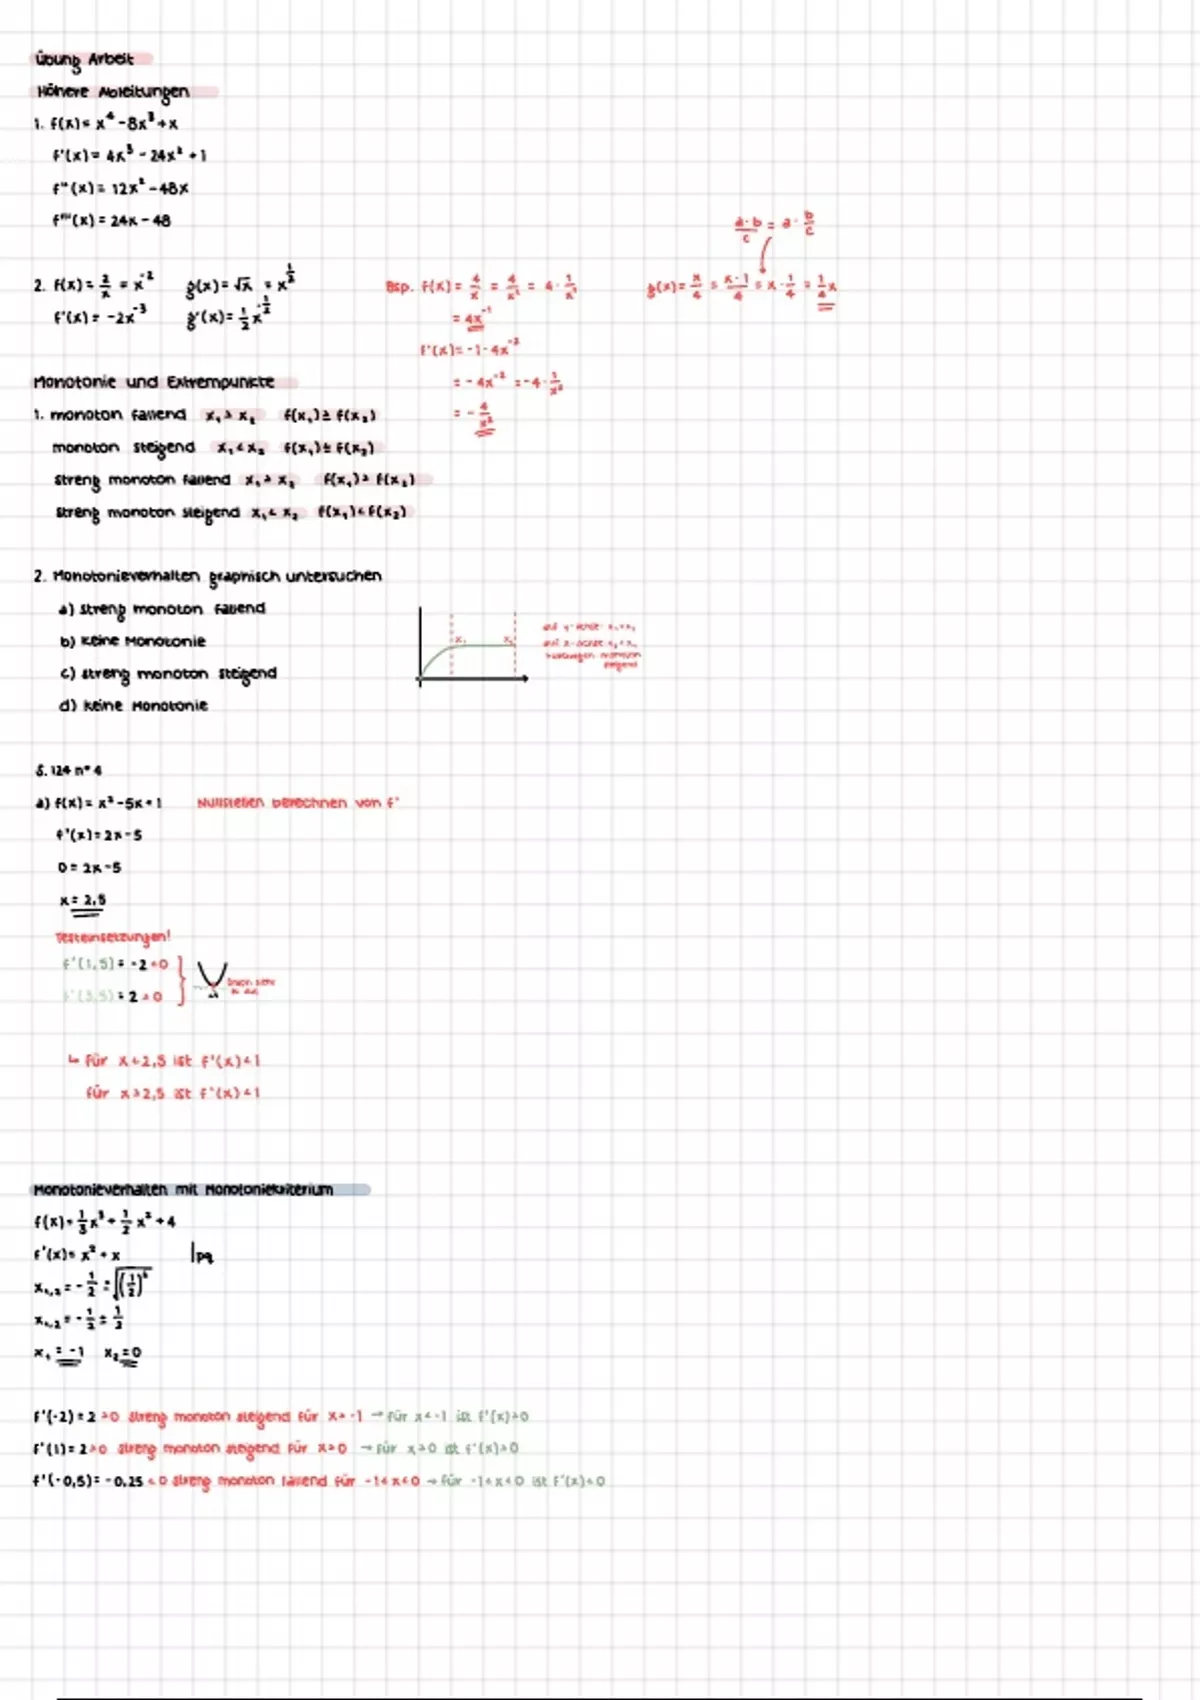 Übung Arbeit
Höhere Ableitungen
1. f(x) = x⁴ - 8x³ + x
f'(x) = 4x³ - 24x² + 1
f''(x) = 12x² - 48x
f'''(x) = 24x - 48
a·b/c = a · b/c
2. f(x) = 2/x = x⁻² g(x) = √x = x^(1/2)
f'(x) = -2x⁻³ g'(x) = 1/2 x^(-1/2)
Bsp. f(x) = 4/x = 4/x¹ = 4 · 1/x¹
= 4x⁻¹
f'(x) = -1 · 4x⁻²
= -4x⁻² = -4 · 1/x²
= - 4/x²
g(x) = x/4 = x·1/4 = x · 1/4 = 1/4 x
Monotonie und Extrempunkte
1. monoton fallend x₁ > x₂ f(x₁) ≥ f(x₂)
monoton steigend x₁ < x₂ f(x₁) ≤ f(x₂)
streng monoton fallend x₁ > x₂ f(x₁) > f(x₂)
streng monoton steigend x₁ < x₂ f(x₁) < f(x₂)
2. Monotonieverhalten graphisch untersuchen
a) streng monoton fallend
b) keine Monotonie
c) streng monoton steigend
d) keine Monotonie
x₁ x₂
monoton
steigend
S. 124 n° 4
a) f(x) = x² - 5x + 1 Nullstellen berechnen von f'
f'(x) = 2x - 5
0 = 2x - 5
x = 2,5
Testeinsetzungen!
f'(1,5) = -2 < 0
f'(3,5) = 2 > 0
↳ für x < 2,5 ist f'(x) < 1
für x > 2,5 ist f'(x) < 1
Monotonieverhalten mit Monotoniekriterium
f(x) = 1/3 x³ + 1/2 x² + 4
f'(x) = x² + x |pq
x₁,₂ = - 1/2 ± √((1/2)²)
x₁,₂ = - 1/2 ± 1/2
x₁ = -1 x₂ = 0
f'(-2) = 2 > 0 streng monoton steigend für x > -1 → für x < -1 ist f'(x) > 0
f'(1) = 2 > 0 streng monoton steigend für x > 0 → für x > 0 ist f'(x) > 0
f'(-0,5) = -0,25 < 0 streng monoton fallend für -1 < x < 0 → für -1 < x < 0 ist f'(x) < 0